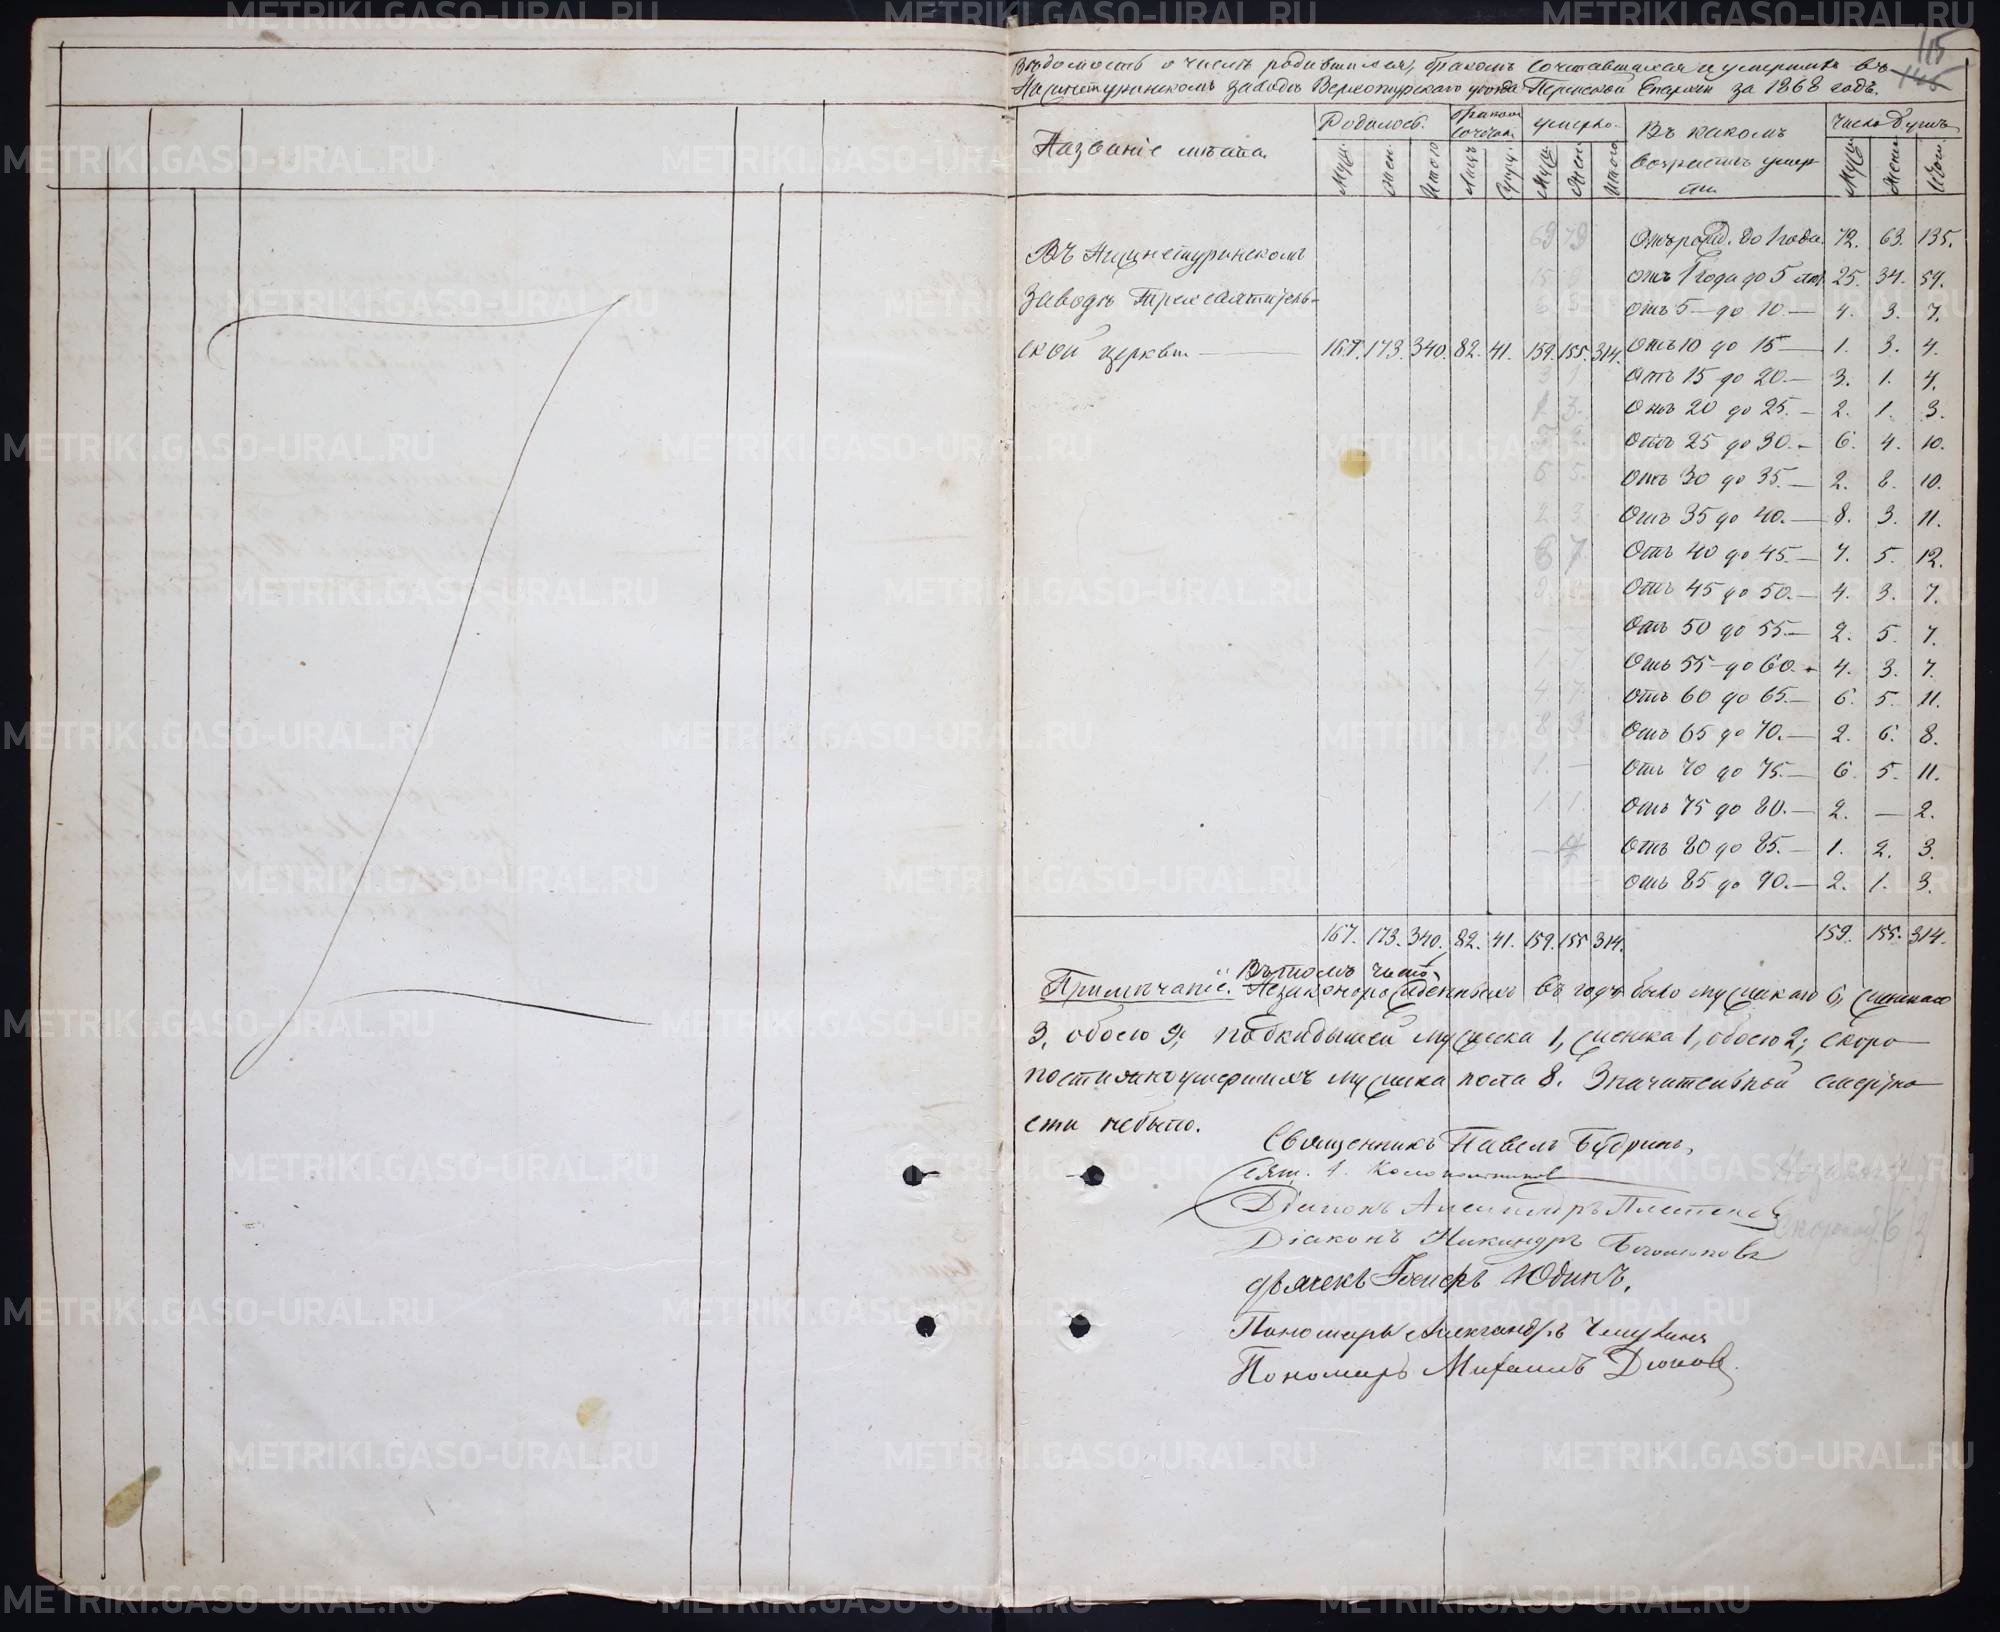 115
146
Вѣдомость о числѣ родившихся, бракомъ сочетавшихся и умершихъ въ
Нижнетуринскомъ заводѣ Верхотурскаго уѣзда Пермской Епархіи за 1868 годъ.
Названіе мѣста. Родилось. бракомъ сочетал. умерло. Въ какомъ возрастѣ умерли. Число душъ
Муж. Жен. Итого Лицъ Супр. Муж. Жен. Итого Муж. Жен. Итог.
Отъ рожд. до 1 года. 72. 63. 135.
Въ Нижнетуринскомъ
отъ 1 года до 5 лѣт. 25. 34. 59.
Заводѣ Трехсвятитель-
отъ 5 — до 10. — 4. 3. 7.
ской церкви. — 167. 173. 340. 82. 41. 159. 155. 314. Отъ 10 до 15 — 1. 3. 4.
Отъ 15 до 20. — 3. 1. 4.
Отъ 20 до 25. — 2. 1. 3.
Отъ 25 до 30. — 6. 4. 10.
Отъ 30 до 35. — 2. 8. 10.
Отъ 35 до 40. — 8. 3. 11.
Отъ 40 до 45 — 7. 5. 12.
Отъ 45 до 50. — 4. 3. 7.
Отъ 50 до 55 — 2. 5. 7.
Отъ 55 — до 60. — 4. 3. 7.
Отъ 60 до 65. — 6. 5. 11.
Отъ 65 до 70. — 2. 6. 8.
Отъ 70 до 75. — 6. 5. 11.
Отъ 75 до 80. — 2. — 2.
Отъ 80 до 85. — 1. 2. 3.
Отъ 85 до 90. — 2. 1. 3.
167. 173. 340. 82. 41. 159. 155 314. 159. 155. 314.
Въ томъ числѣ
Примѣчаніе. Незаконорожденныхъ въ годѣ было мужскаго 6, женскаго
3, обоего 9; подкидышей мужска 1, женска 1, обоего 2; скоро-
постижно умершихъ мужска пола 8. Значительной смертно-
сти небыло.
Священникъ Павелъ Будринъ,
Свящ. А. Коло
Діаконъ Александръ Плетенев
Діаконъ Никандръ Богомоловъ
дьячекъ Юдинъ.
Пономарь Александръ
Пономарь Михаилъ
METRIKI.GASO-URAL.RU